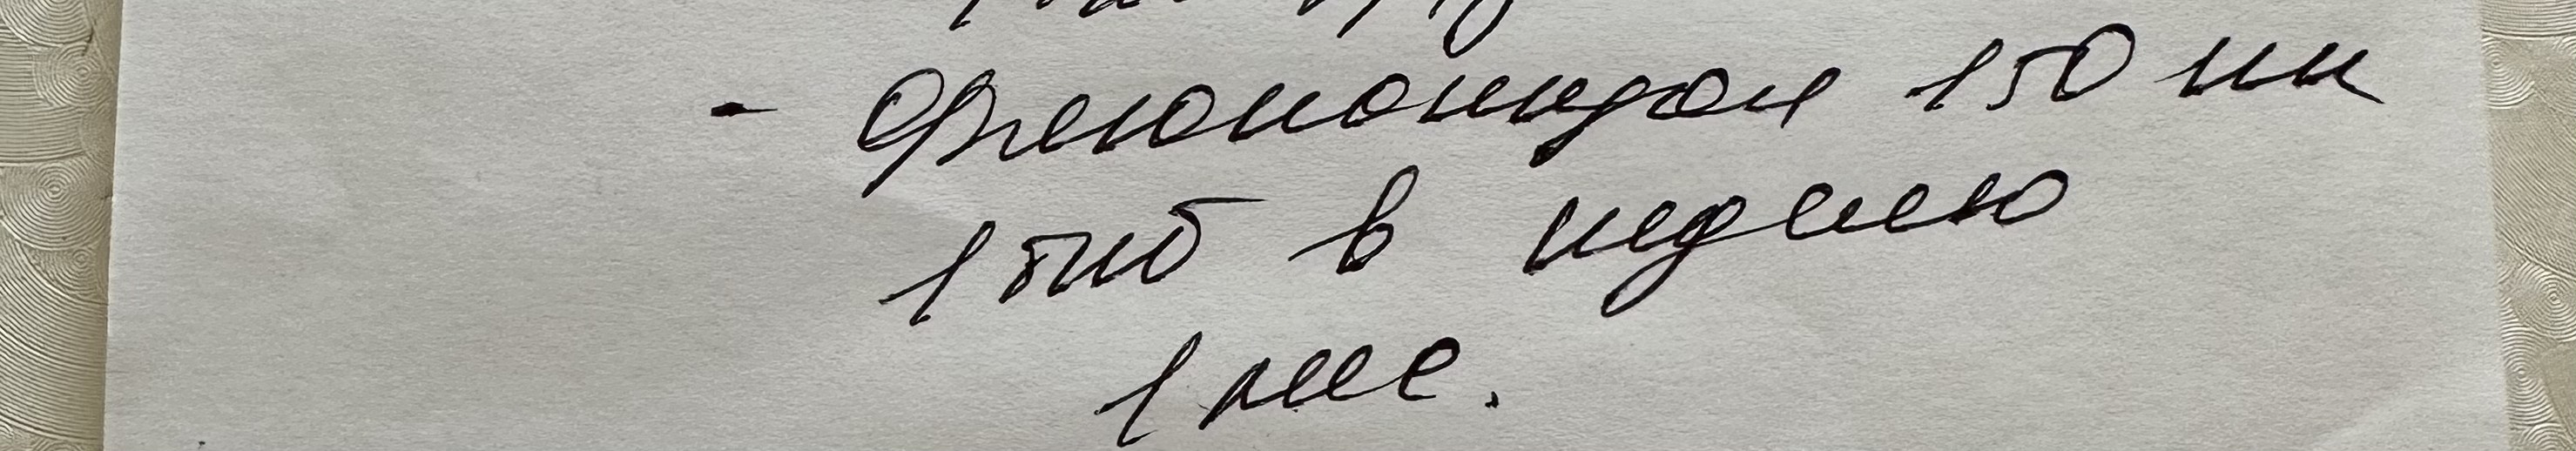 - Флюконазол 150 мг
1 таб в неделю
1 мес.